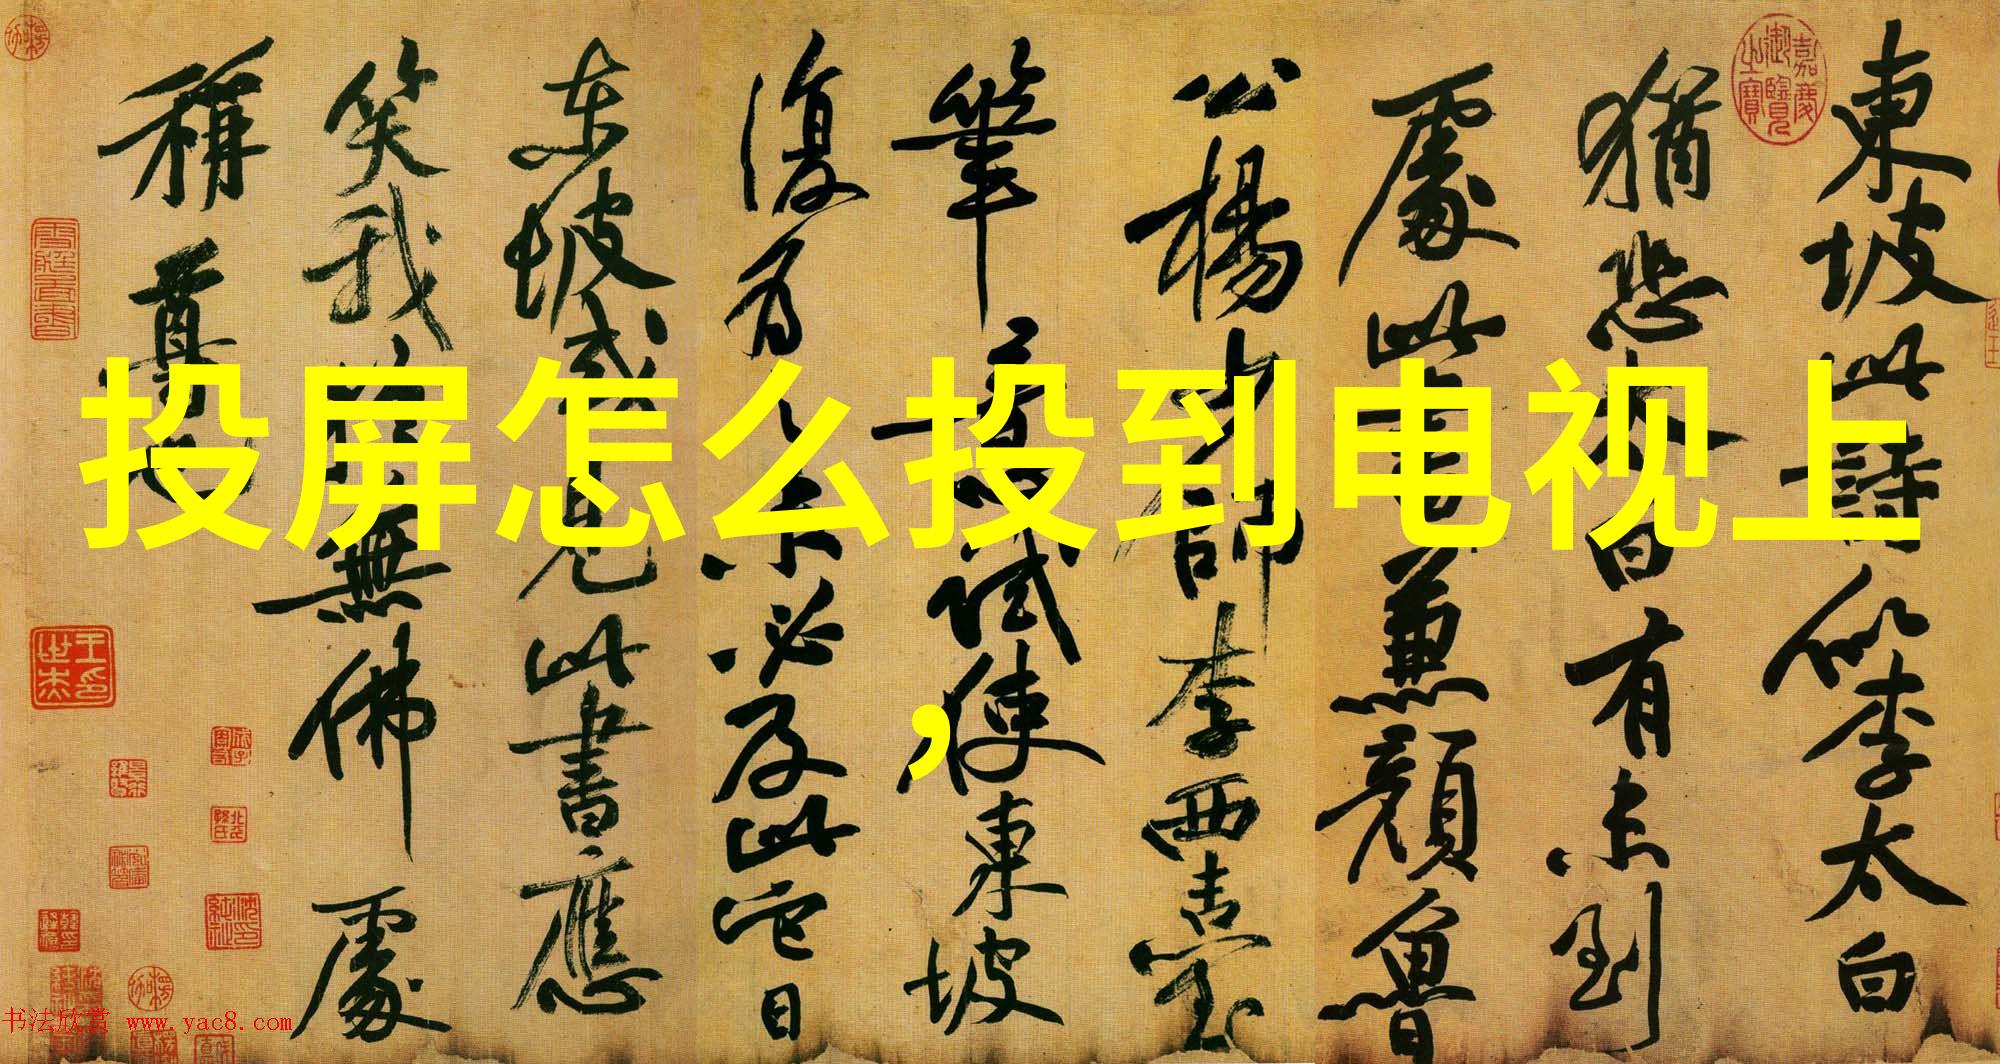 投屏怎么投到电视上
,
東坡此詩似李太白
猶恐太白有未到
處此書兼顔魯
公楊少師李西臺
筆意試使東坡
復為之未必及此它日
东坡或見此書應
笑我於無佛處
稱尊也
嘉慶御覽之寶
王世杰印
书法欣赏 www.yac8.com